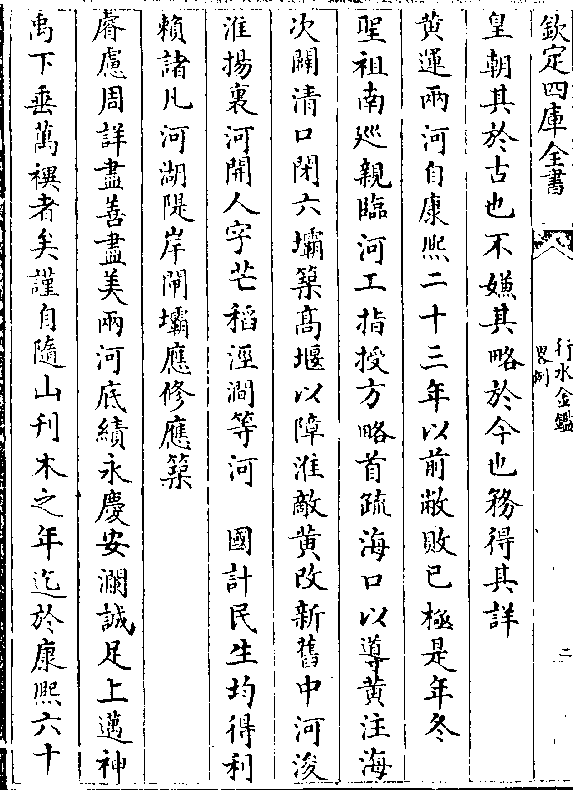 欽定四庫全書
行水金鑑
畧例
二
皇朝其於古也不嫌其略於今也務得其詳
黄運兩河自康熙二十三年以前敝敗已極是年冬
聖祖南廵親臨河工指授方略首疏海口以導黄注海
次闢清口閉六壩築髙堰以障淮敵黄改新舊中河浚
淮揚裏河開人字芒稻涇澗等河 國計民生均得利
賴諸凡河湖隄岸閘壩應修應築
睿慮周詳盡善盡美兩河底績永慶安瀾誠足上邁神
禹下垂萬禩者矣謹自隨山刋木之年迄於康熙六十